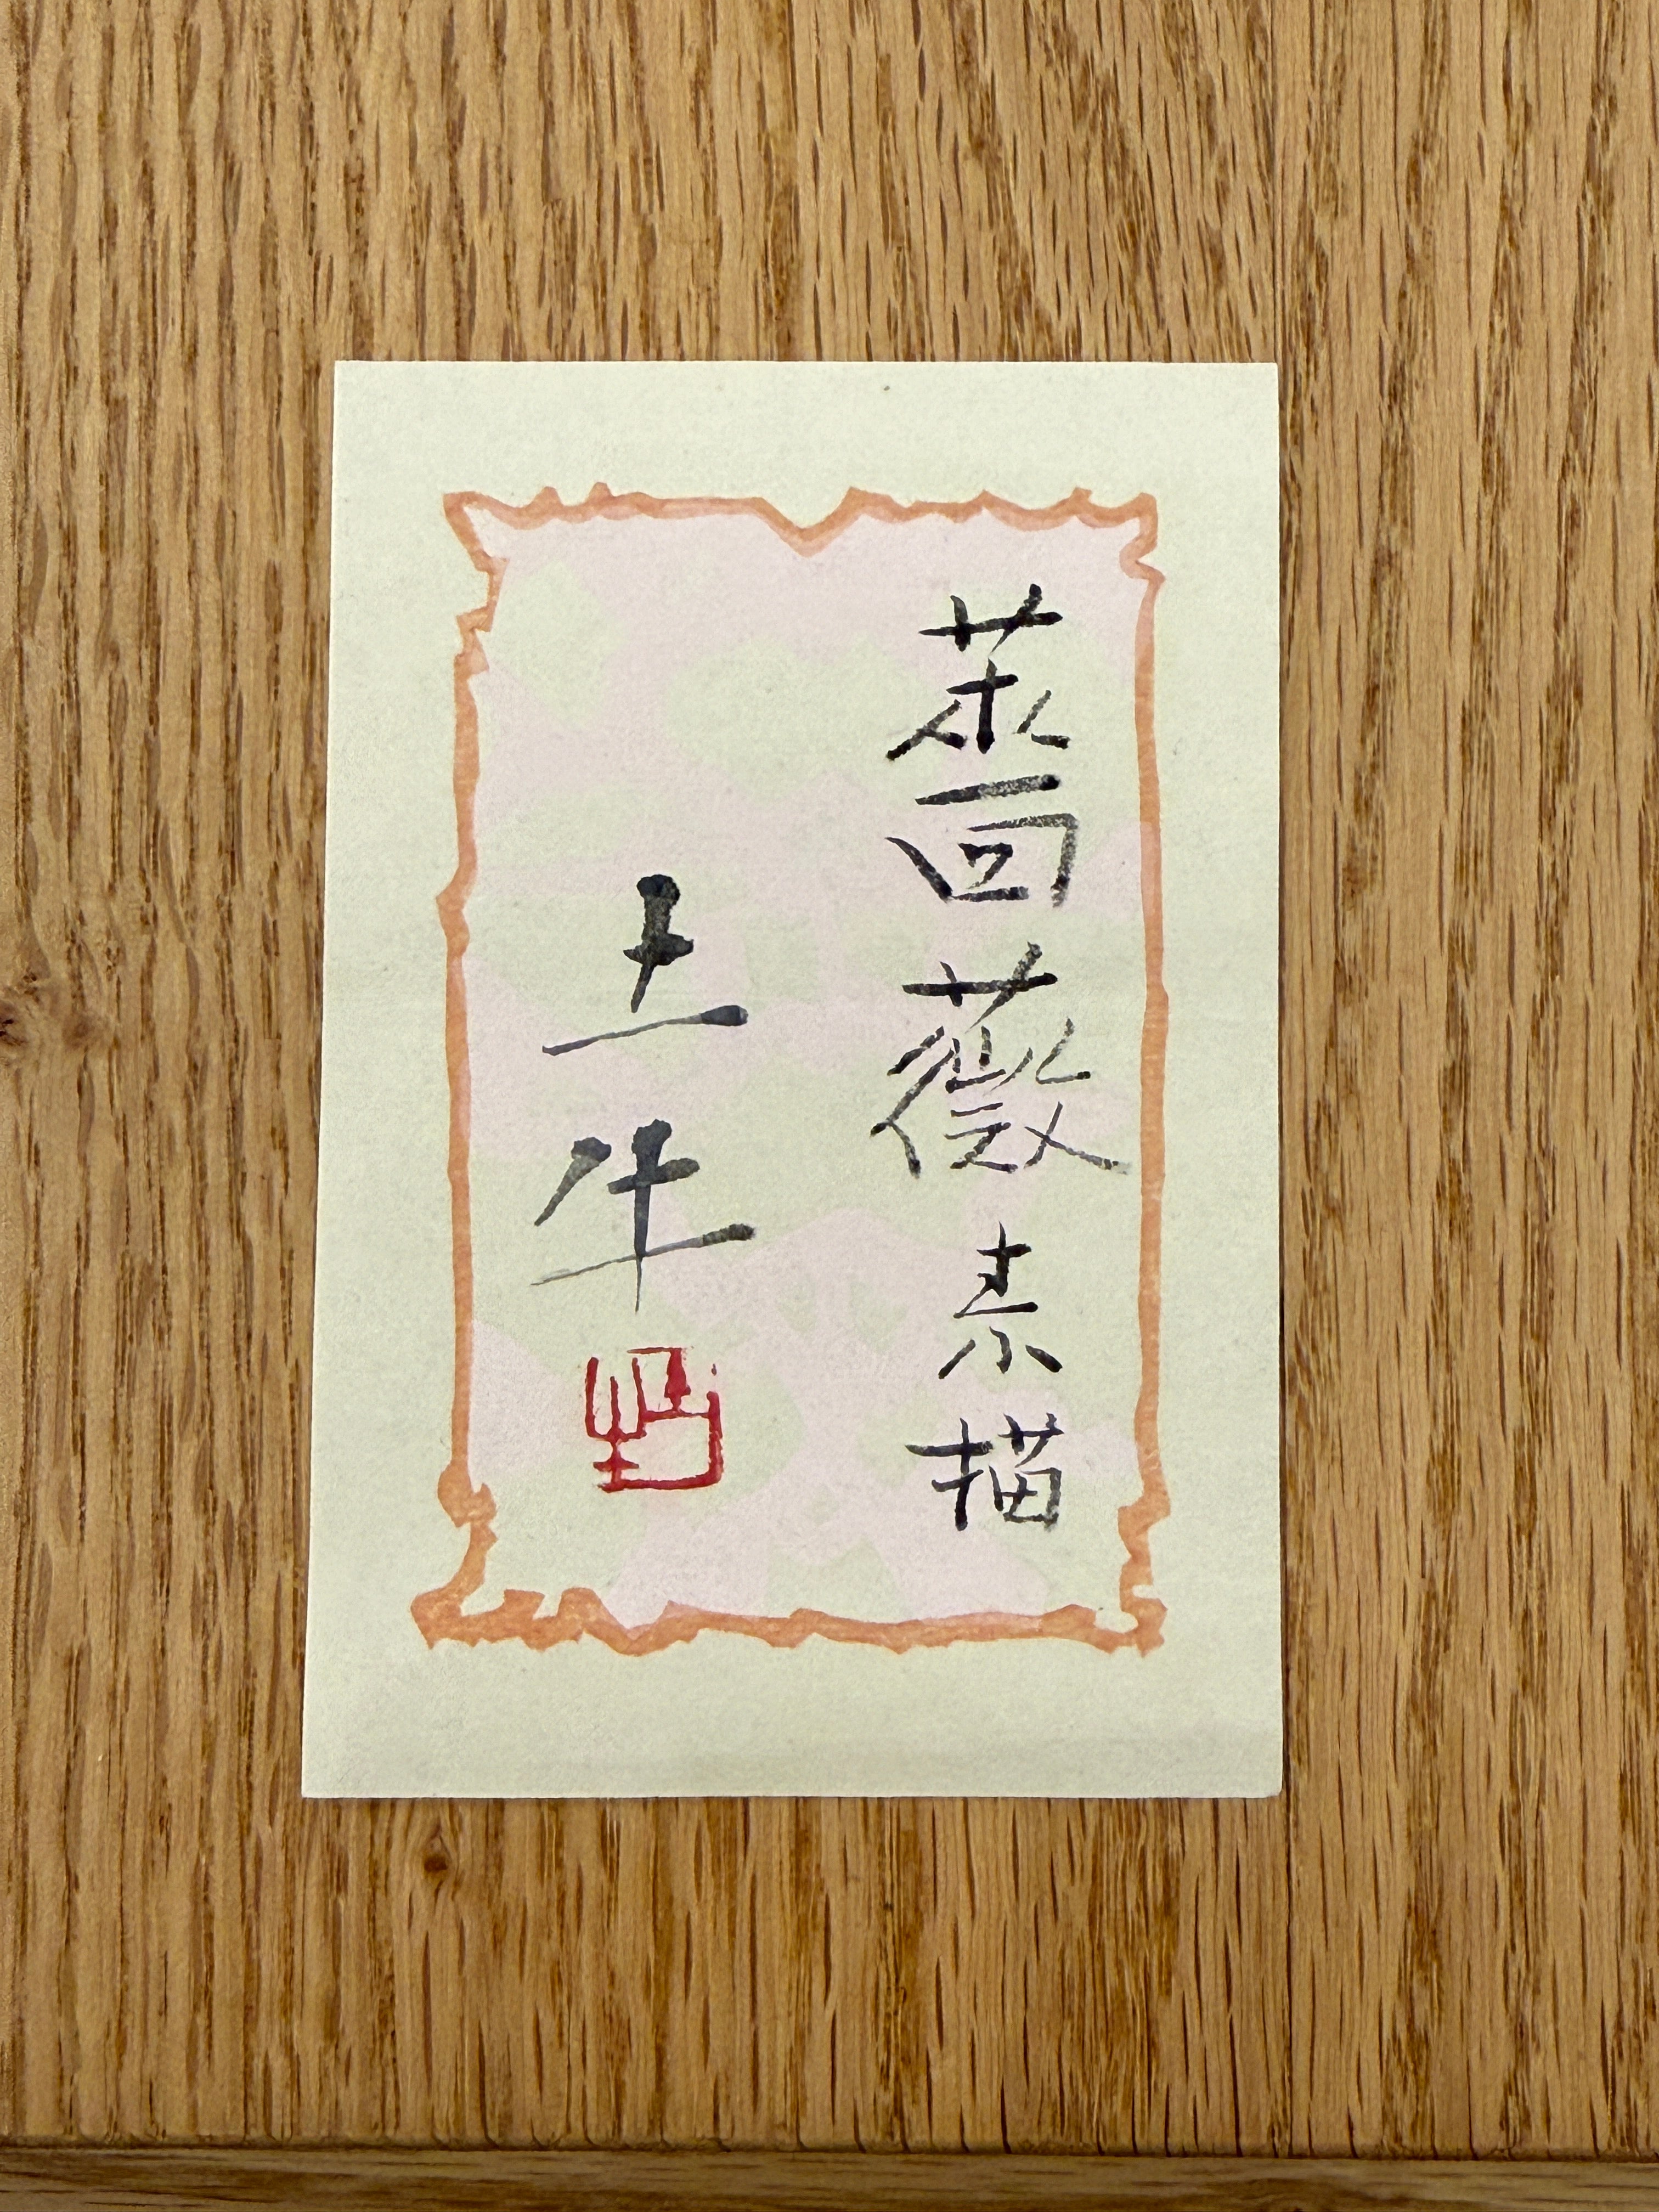 薔薇素描
土牛